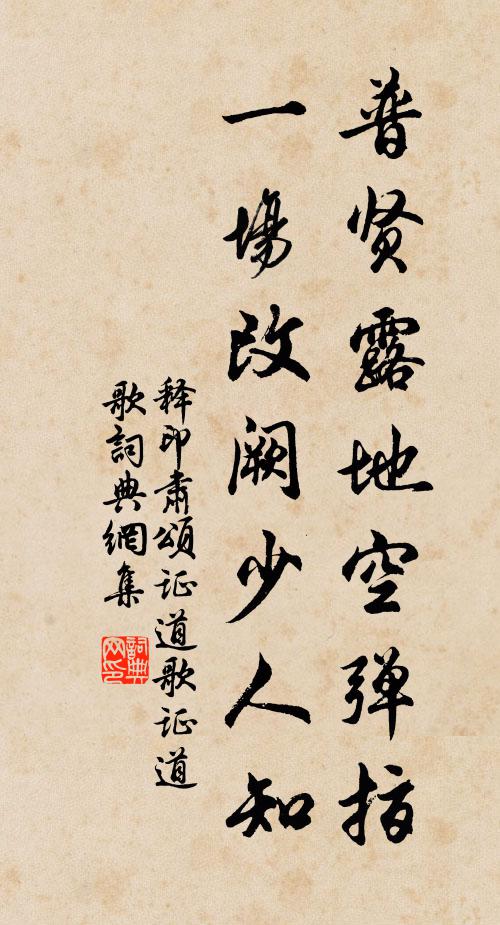 普贤露地空弹指
一場改阙少人知
释印肃頌证道歌证道
歌詞典網集
詞典
网印